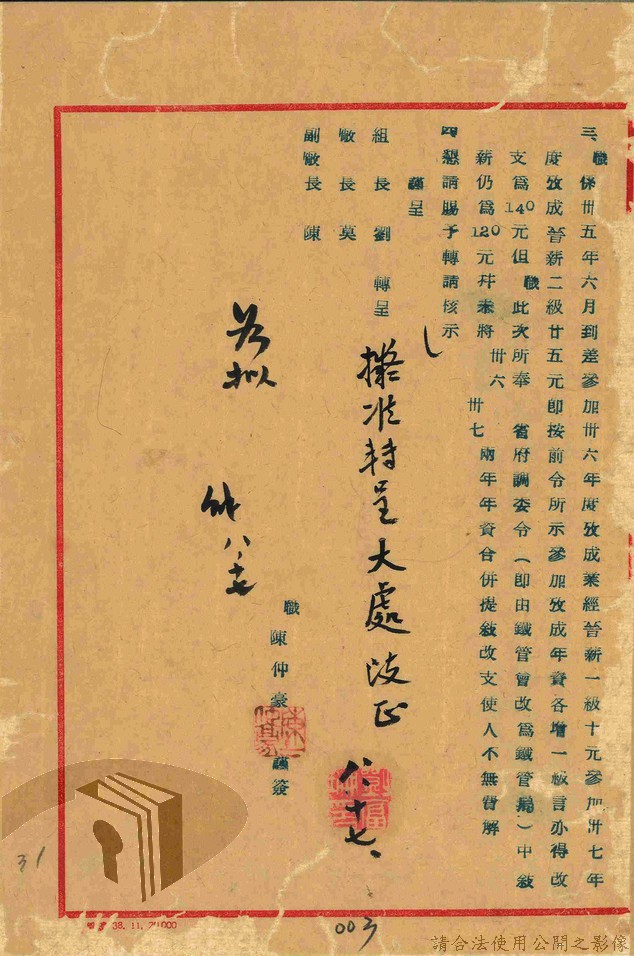 三、職係卅五年六月到差參加卅六年度攷成業經晉薪一級十元參加卅七年
度攷成晉薪二級廿五元即按前令所示參加攷成年資各增一級言亦得改
支為140元但職此次所奉 省府調委令(即由鐵管會改為鐵管局)中敍
薪仍為120元幷未將卅六卅七兩年年資合併提敍改支使人不無費解
四懇請賜予轉請核示
謹呈
組長劉 轉呈
處長莫
副處長陳
擬准轉呈大處改正
八、十七、
職 陳仲豪 謹簽
若擬
八、十七
31
003
38.11.20000
請合法使用公開之影像